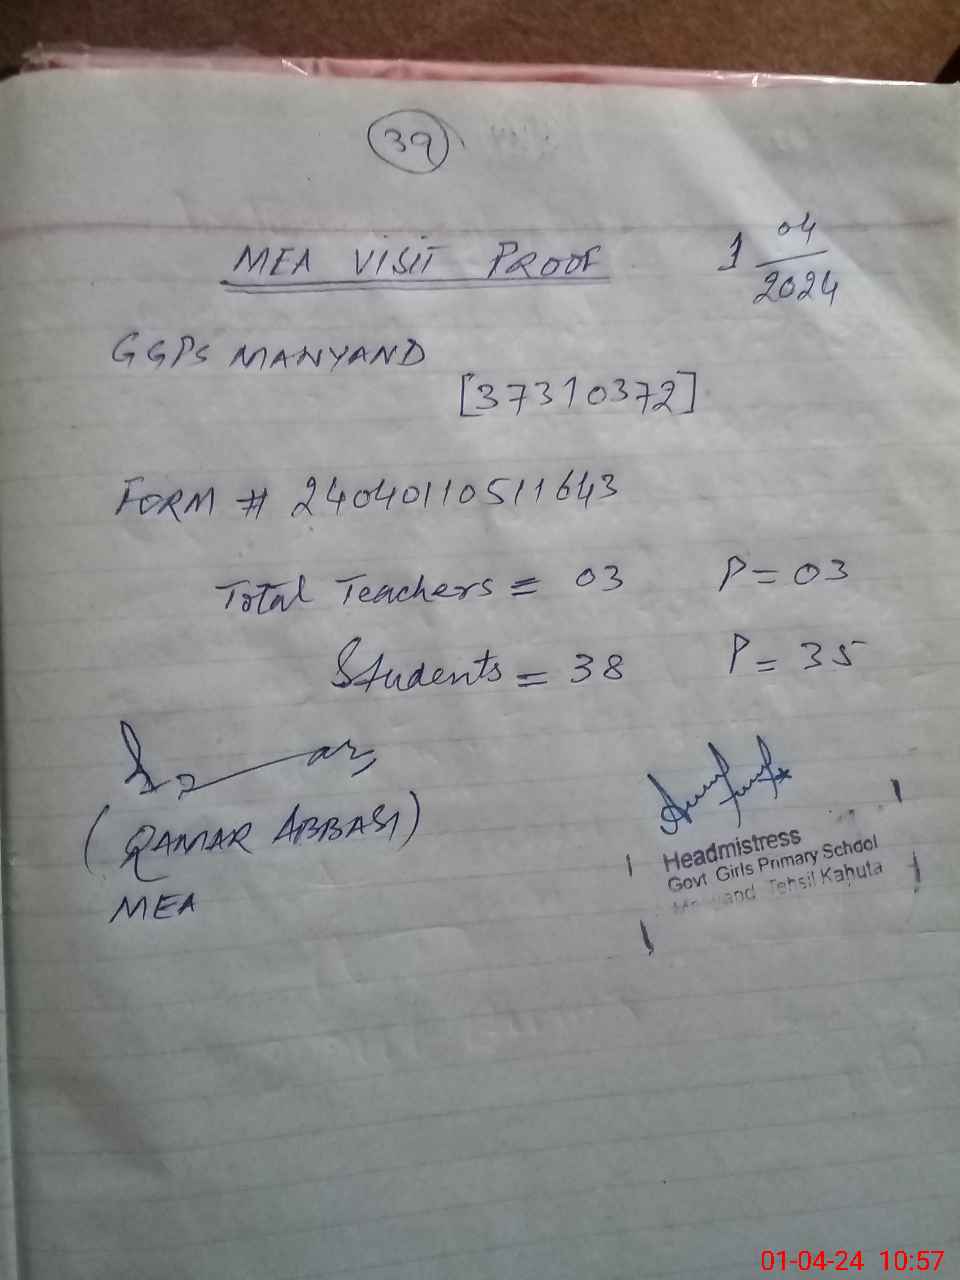 39
MEA VISIT PROOF
1 04/2024
GGPS MANYAND
[37310372]
FORM # 24040110511643
Total Teachers = 03 P = 03
Students = 38 P = 35
(QAMAR ABBASI)
MEA
Headmistress
Govt Girls Primary School
Tehsil Kahuta
01-04-24 10:57